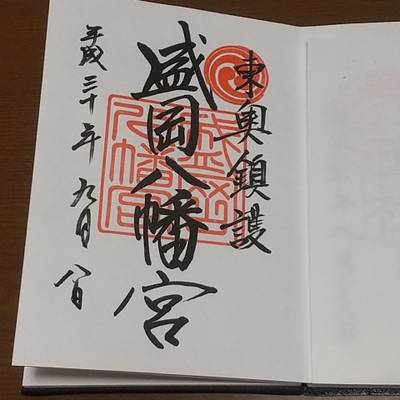 東奥鎮護
盛岡八幡宮
盛岡八幡宮
平成三十年九月八日